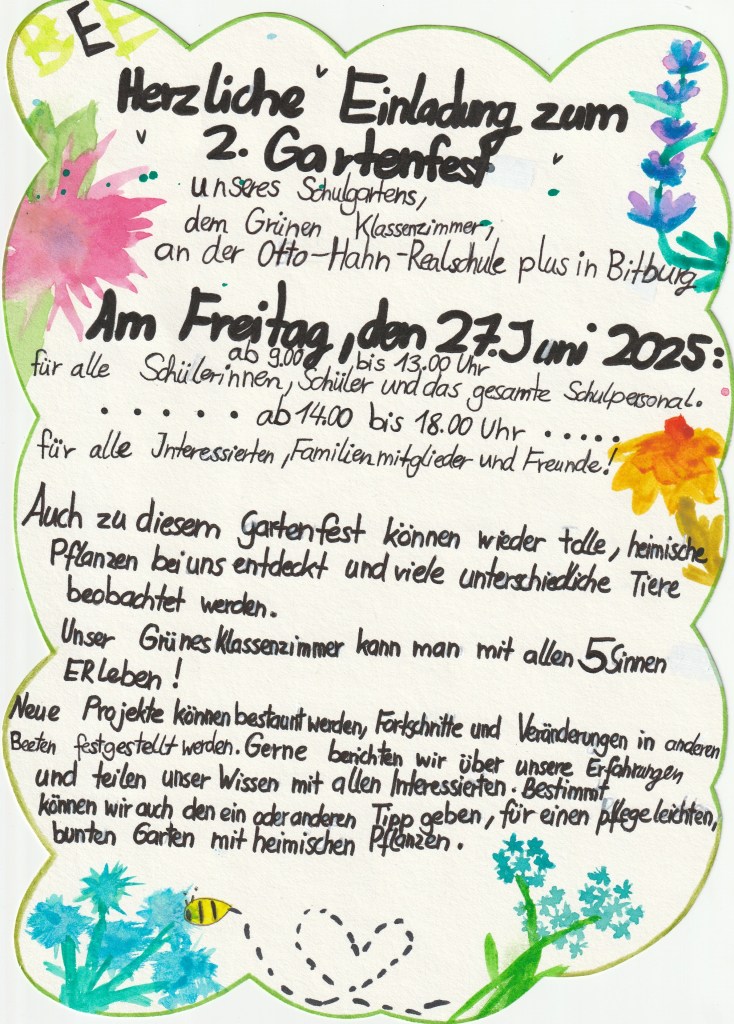 BEE
Herzliche Einladung zum
2. Gartenfest
unseres Schulgartens,
dem Grünen Klassenzimmer,
an der Otto-Hahn-Realschule plus in Bitburg
Am Freitag, den 27. Juni 2025:
ab 9.00 bis 13.00 Uhr
für alle Schülerinnen, Schüler und das gesamte Schulpersonal.
. . . . . . ab 14.00 bis 18.00 Uhr . . . . .
für alle Interessierten, Familienmitglieder und Freunde!
Auch zu diesem Gartenfest können wieder tolle, heimische
Pflanzen bei uns entdeckt und viele unterschiedliche Tiere
beobachtet werden.
Unser Grünes Klassenzimmer kann man mit allen 5 Sinnen
ERleben!
Neue Projekte können bestaunt werden, Fortschnitte und Veränderungen in anderen
Beeten festgestellt werden. Gerne berichten wir über unsere Erfahrungen
und teilen unser Wissen mit allen Interessierten. Bestimmt
können wir auch den ein oder anderen Tipp geben, für einen pflegeleichten,
bunten Garten mit heimischen Pflanzen.